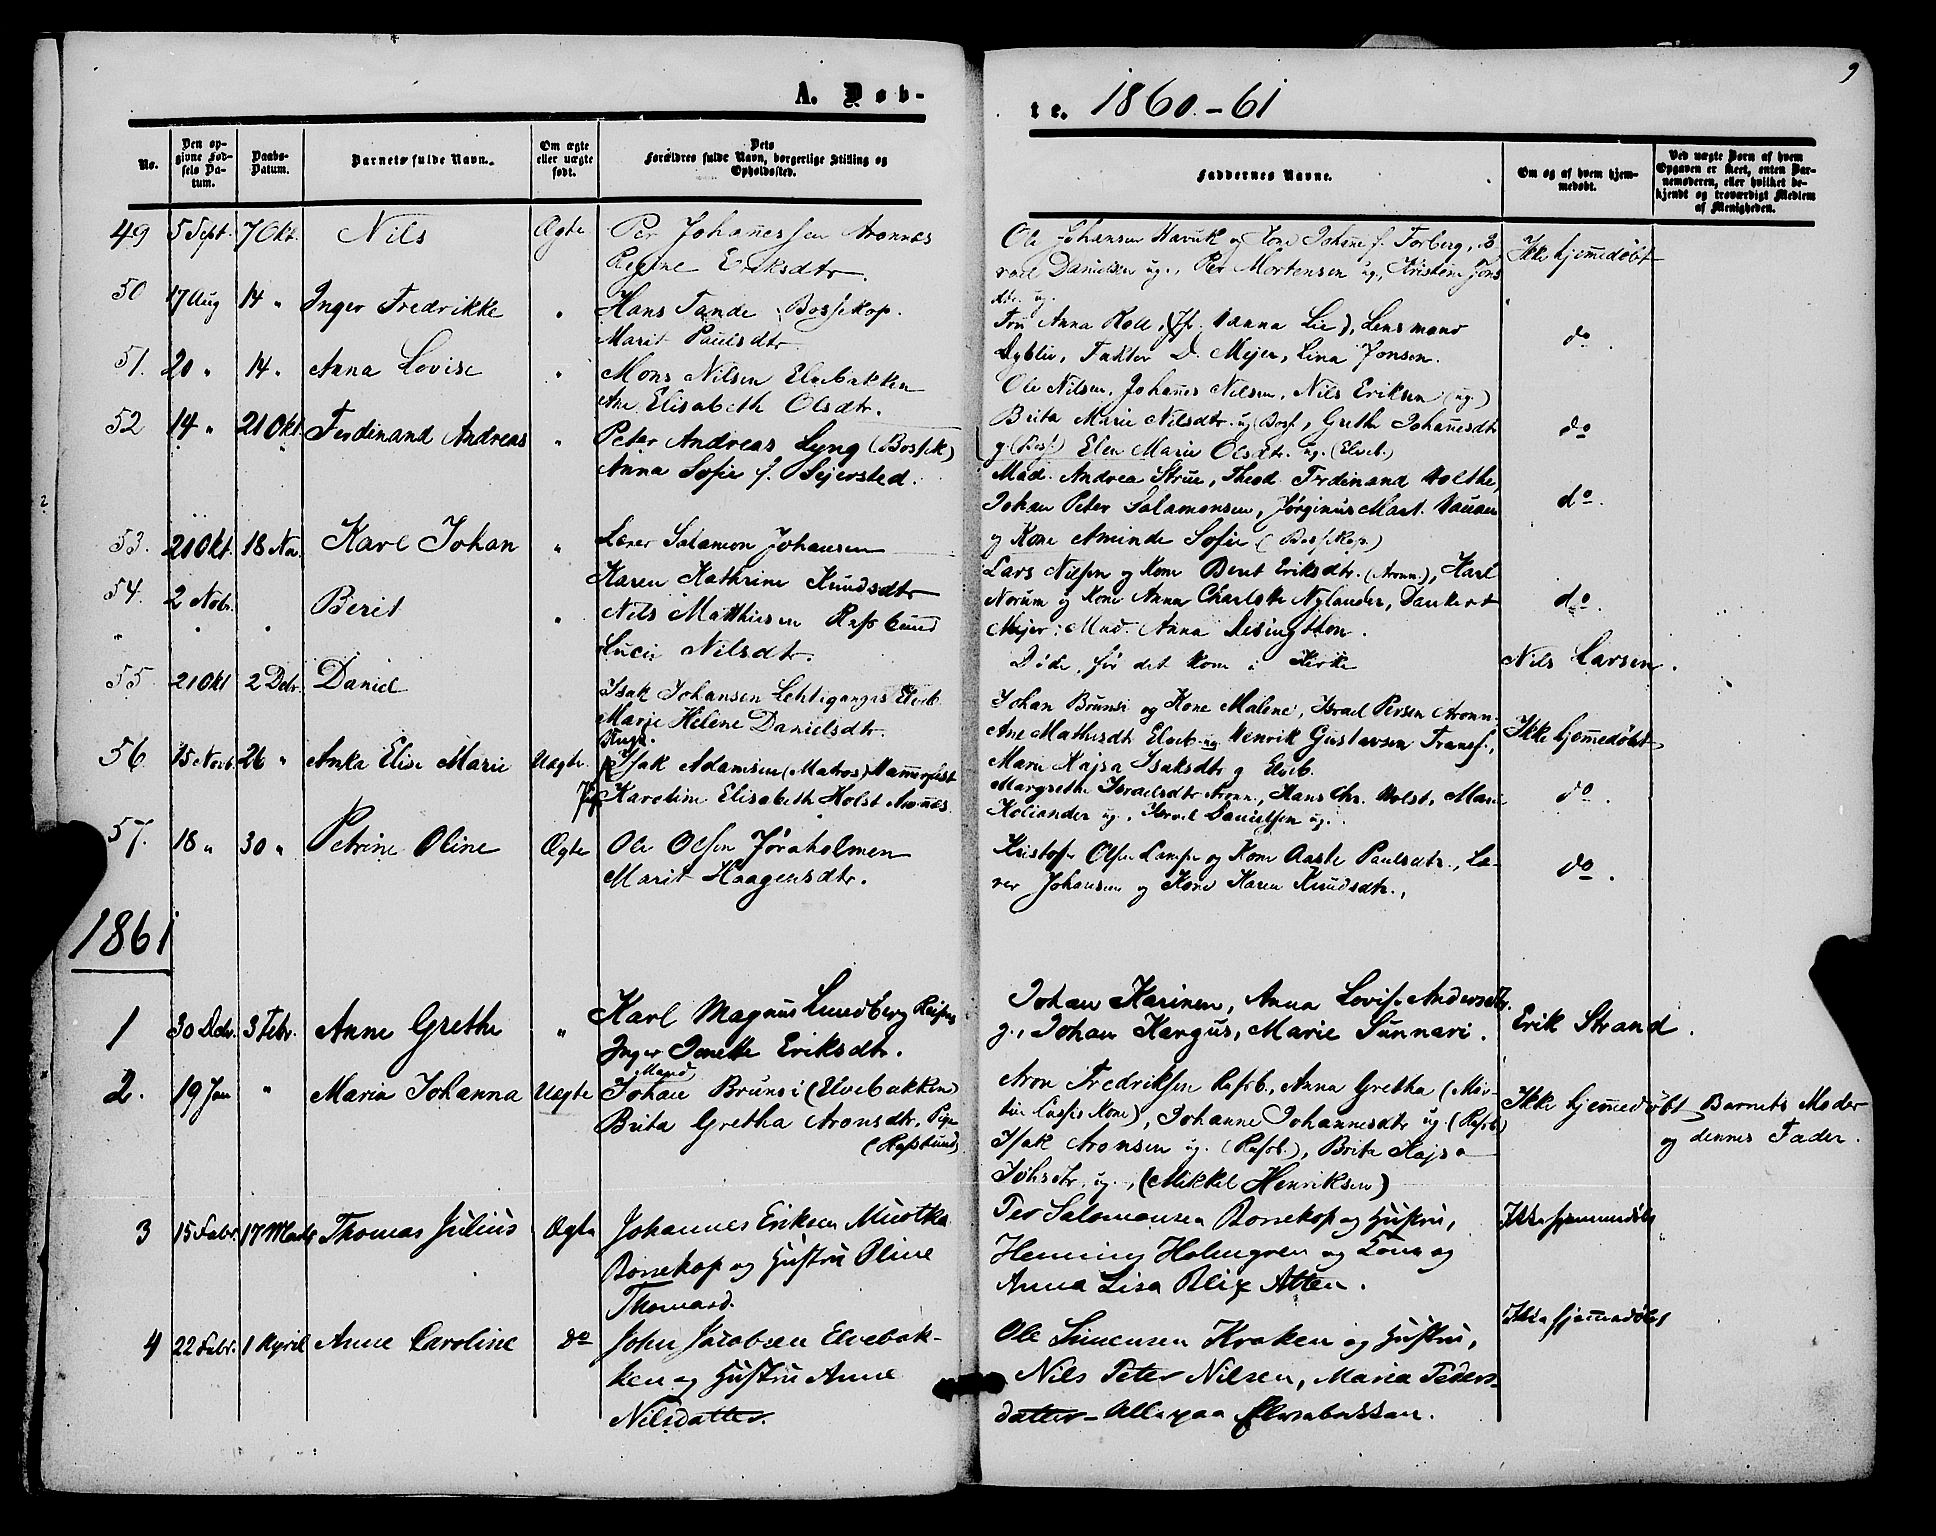 A. Døb-
te. 1860-61
9
No.
Den opgivne Fødsels Datum.
Daabs-Datum.
Barnets fulde Navn.
Om ægte eller uægte født.
Dets Forældres fulde Navn, borgerlige Stilling og Opholdssted.
Faddernes Navne.
Om og af hvem hjemmedøbt.
Ved uægte Børn af hvem Opgaven er skeet, enten Barnemoderen, eller hvilket bekjendt og troværdigt Medlem af Menigheden.
49 5 Sept. 7 Okt. Nils Ægte Per Johanessen Aronnæs
Regine Eriksdtr.
Ole Johansen Havuk og Kone Johane f. Torberg,
Danielsen ug., Per Mortensen ug., Kristine Jons
dtr. ug.
Ikke hjemmedøbt
50 17 Aug 14 " Inger Fredrikke " Hans Tande Bossekop.
Marit Paulsdtr.
Fru Anna Roll, Lie), Lensmand
Dyblie, Faktor D. Mejer, Lina Jonsen.
do.
51. 20 " 14 " Anna Lovise " Mons Nilsen Elvebakken
Ane Elisabeth Olsdtr.
Ole Nilsen, Johanes Nilsen, Nils Eriksen (ug.)
Brita Marie Nilsdtr. ug (Bosf, Grethe Johanesdtr
g (Bosf) Elen Marie Olsdtr. ug. (Elveb.)
do
52 14 " 21 Okt. Ferdinand Andreas " Peter Andreas Lyng (Bossek)
Anna Sofie f. Sejersted.
Mad. Andrea Strue, Theod. Ferdinand Holthe,
Johan Peter Salamonsen, Jørginus Mart.
og Kone Aminde Sofie (Bossekop.)
do.
53. 21 Okt. 18 Nov. Karl Johan " Lærer Salamon Johansen
Karen Kathrine Knudsdtr
Lars Nilsen og Kone Berit Eriksdtr. (Aronn.), Karl
Norum og Kone Anna Charlotte Nylander, Dankert
Mejer, Mad. Anna
do.
54. 2 Nobr. " Berit " Nils Matthisen Rafsbund
Lucie Nilsdtr.
Døde, før det kom i Kirke
Nils Larsen.
55 21 Okt 2 Debr. Daniel Isak Johansen Lehtigangas Elveb.
Marje Helene Danielsdtr.
Johan Brunsi og Kone Malene, Israel Persen Aronn.
Ane Mathisdtr Elveb ug Henrik Gustavsen Transf.,
Marie Kajsa Isaksdtr g Elveb.
Ikke hjemmedøbt
56 15 Novb. 26 " Anka Elise Marie Uægte Ungk.
Isak Adamsen (Matros) Hammerfest
Pig. Karoline Elisabeth Holst Aronnæs.
Margrethe Israelsdtr Aronn., Hans Chr. Holst, Marie
Koliander ug., Israel Danielsen ug.
do.
57. 18 " 30 " Petrine Oline Ægte Ole Olsen Jøraholmen
Marit Haagensdtr.
Kristofer Olsen Lampe og Kone Aaste Paulsdtr., Læ-
rer Johansen og Kone Karen Knudsdtr.,
do.
1861
1 30 Debr. 3 Febr. Anne Grethe " Karl Magnus Lundberg
Inger Jonette Eriksdtr.
Johan Karinen, Anna Lovise Andersdtr.
g., Johan Kargus, Marie Sunnari.
Erik Strand.
2. 19 Jan " Maria Johanna Uægte Mand
Johan Brunsi (Elvebakken)
Brita Gretha Aronsdtr. Pige
(Rafsbund)
Aron Fredriksen Rafsb., Anna Gretha (Mar-
tin Kone), Johanne Johannesdtr ug. (Rafsb)
Isak Aronsen ug. (Rafsb.), Brita Kajsa
Johsdtr. ug., (Mikkel Henriksen)
Ikke hjemmedøbt
Barnets Moder
og dennes Fader.
3 15 Febr. 17 Marts Thomas Julius Ægte Johannes Eriksen Muotka
Bossekop og Hustru Oline
Thomasd.
Per Salomonsen Bossekop og Hustru,
Henning Holmgren og Kone og
Anna Lisa Blix Alten.
Ikke hjemmedøbt
"
4 22 Febr. 1 April Anne Caroline do John Jacobsen Elvebak-
ken og Hustru Anne
Nilsdatter.
Ole Simensen Kraken og Hustru,
Nils Peter Nilsen, Maria Peders-
datter - Alle paa Elvebakken.
Ikke hjemmedøbt